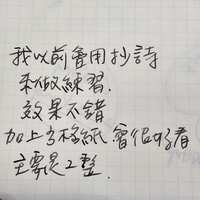 我以前會用抄詩
來做練習.
效果不錯
加上方格紙.會很好看
主要是工整.